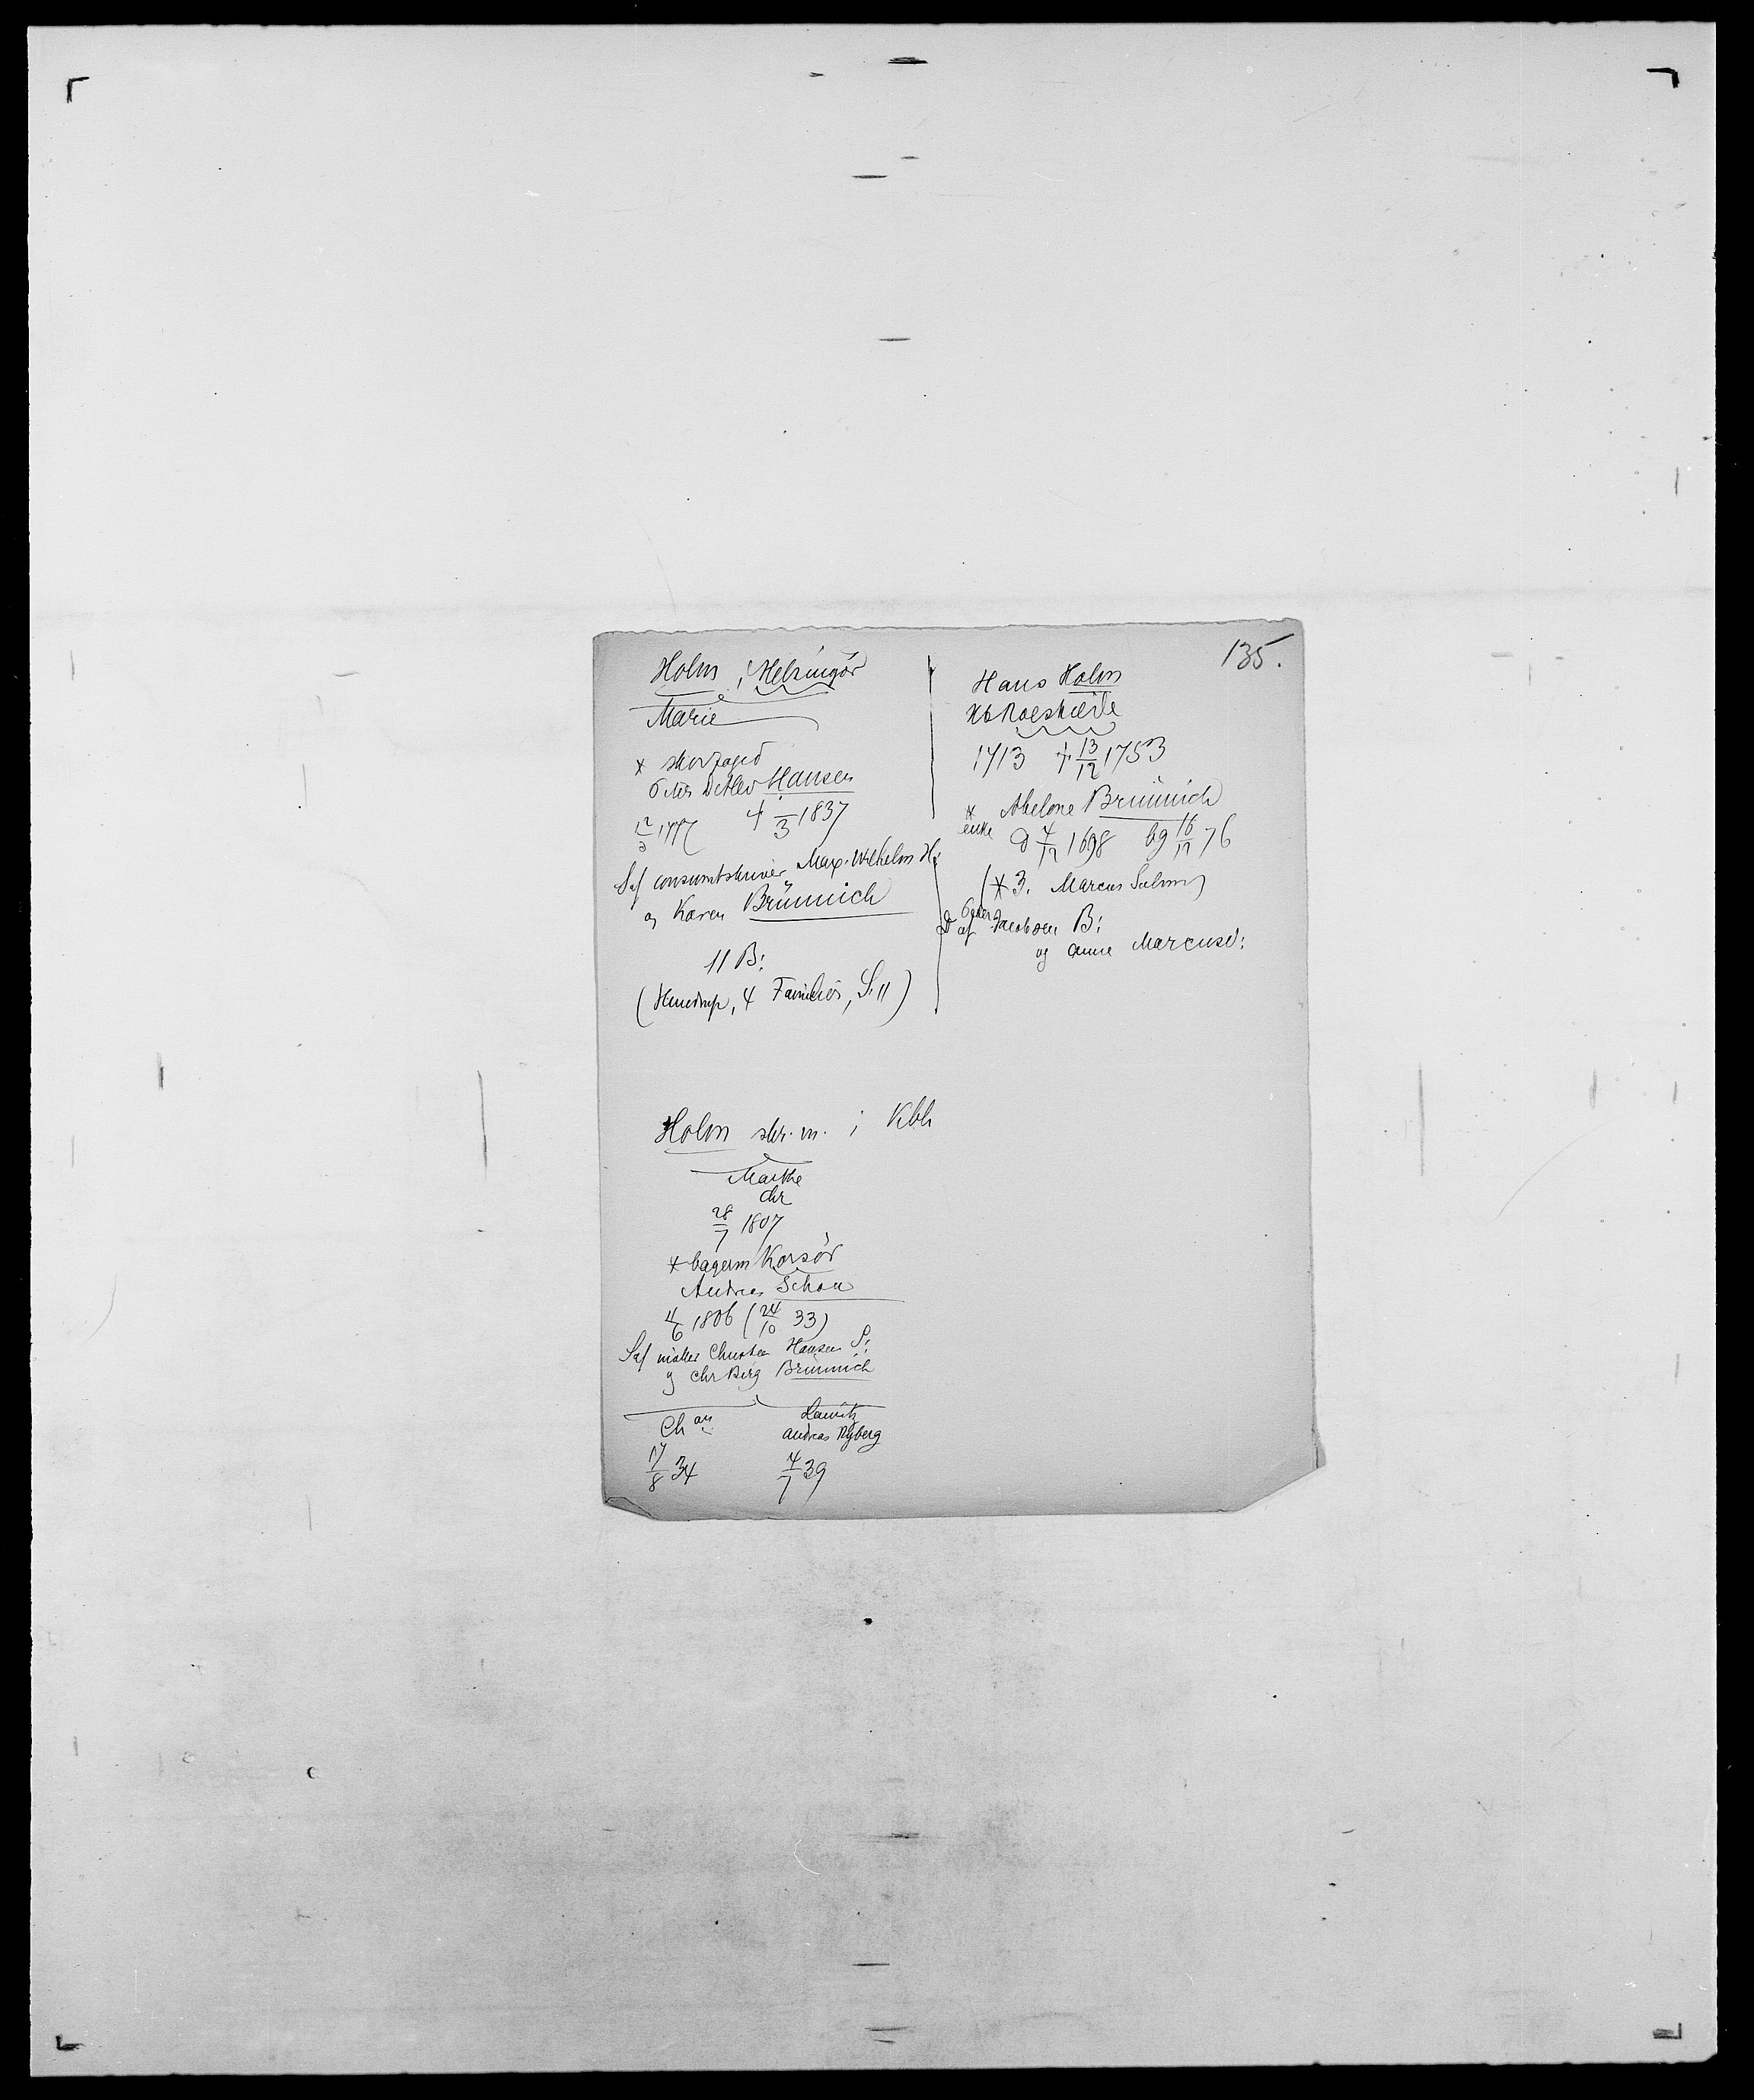 135.
Holm i Helsingör
Marie
* skovfoged
Peter Detlev Hansen
1777 † 3 1837
S af consumtskriver Max. Wilhelm H:
og Karen Brünnich
11 B:
(Hundrup, 4 Familier, S. 11)
Hans Holm
Kb Roeskilde
1713 † 13/12 1753
* Abelone Brünnich
enke d 4/12 1698 bg 16/12 76
(* 3. Marcus
D af Peder Jacobsen B:
og Anne Marcusd:
Holm skr. m. i Kbh
Marthe
Chr
28/7 1807
* bagerm Korsör
Andreas Schou
4/6 1806 (24/10 33)
S af møller Christen Hansen S:
og Chr Birg Brünnich
Ch an Lauritz
Andreas Nyberg
17/8 34 4/7 39